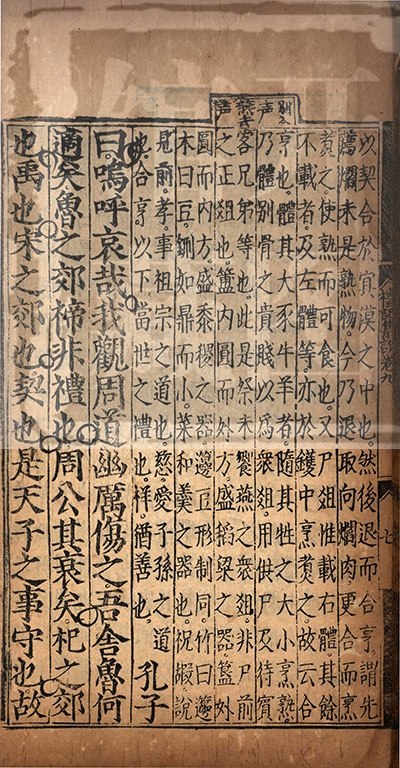 禮記集說卷九
七
別入
聲
盛平
聲
以契合於冥漠之中也。然後退而合亨。謂先
薦爓未是熟物。今乃退取向爓肉。更合而烹
煑之使熟而可食也。又尸俎惟載右體。其餘
不載者。及左體等。亦於鑊中烹煑之。故云合
亨也。體其犬豕牛羊者。隨其牲之大小烹熟
乃體別骨之貴賤。以爲衆俎。用供尸及待賓
客兄弟等也。此是祭末饗燕之衆俎。非尸前
之正俎也。簠内圓而外方。盛稻粱之器。簋外
圓而内方。盛黍稷之器。籩豆形制同。竹曰籩
木曰豆。鉶如鼎而小。菜和羹之器也。祝嘏說
見前。孝事祖宗之道也。慈愛子孫之道
合亨以下當世之禮也。祥猶善也。
孔子
曰嗚呼哀哉我觀周道幽厲傷之吾舍魯何
適矣魯之郊禘非禮也周公其衰矣杞之郊
也禹也宋之郊也契也是天子之事守也故